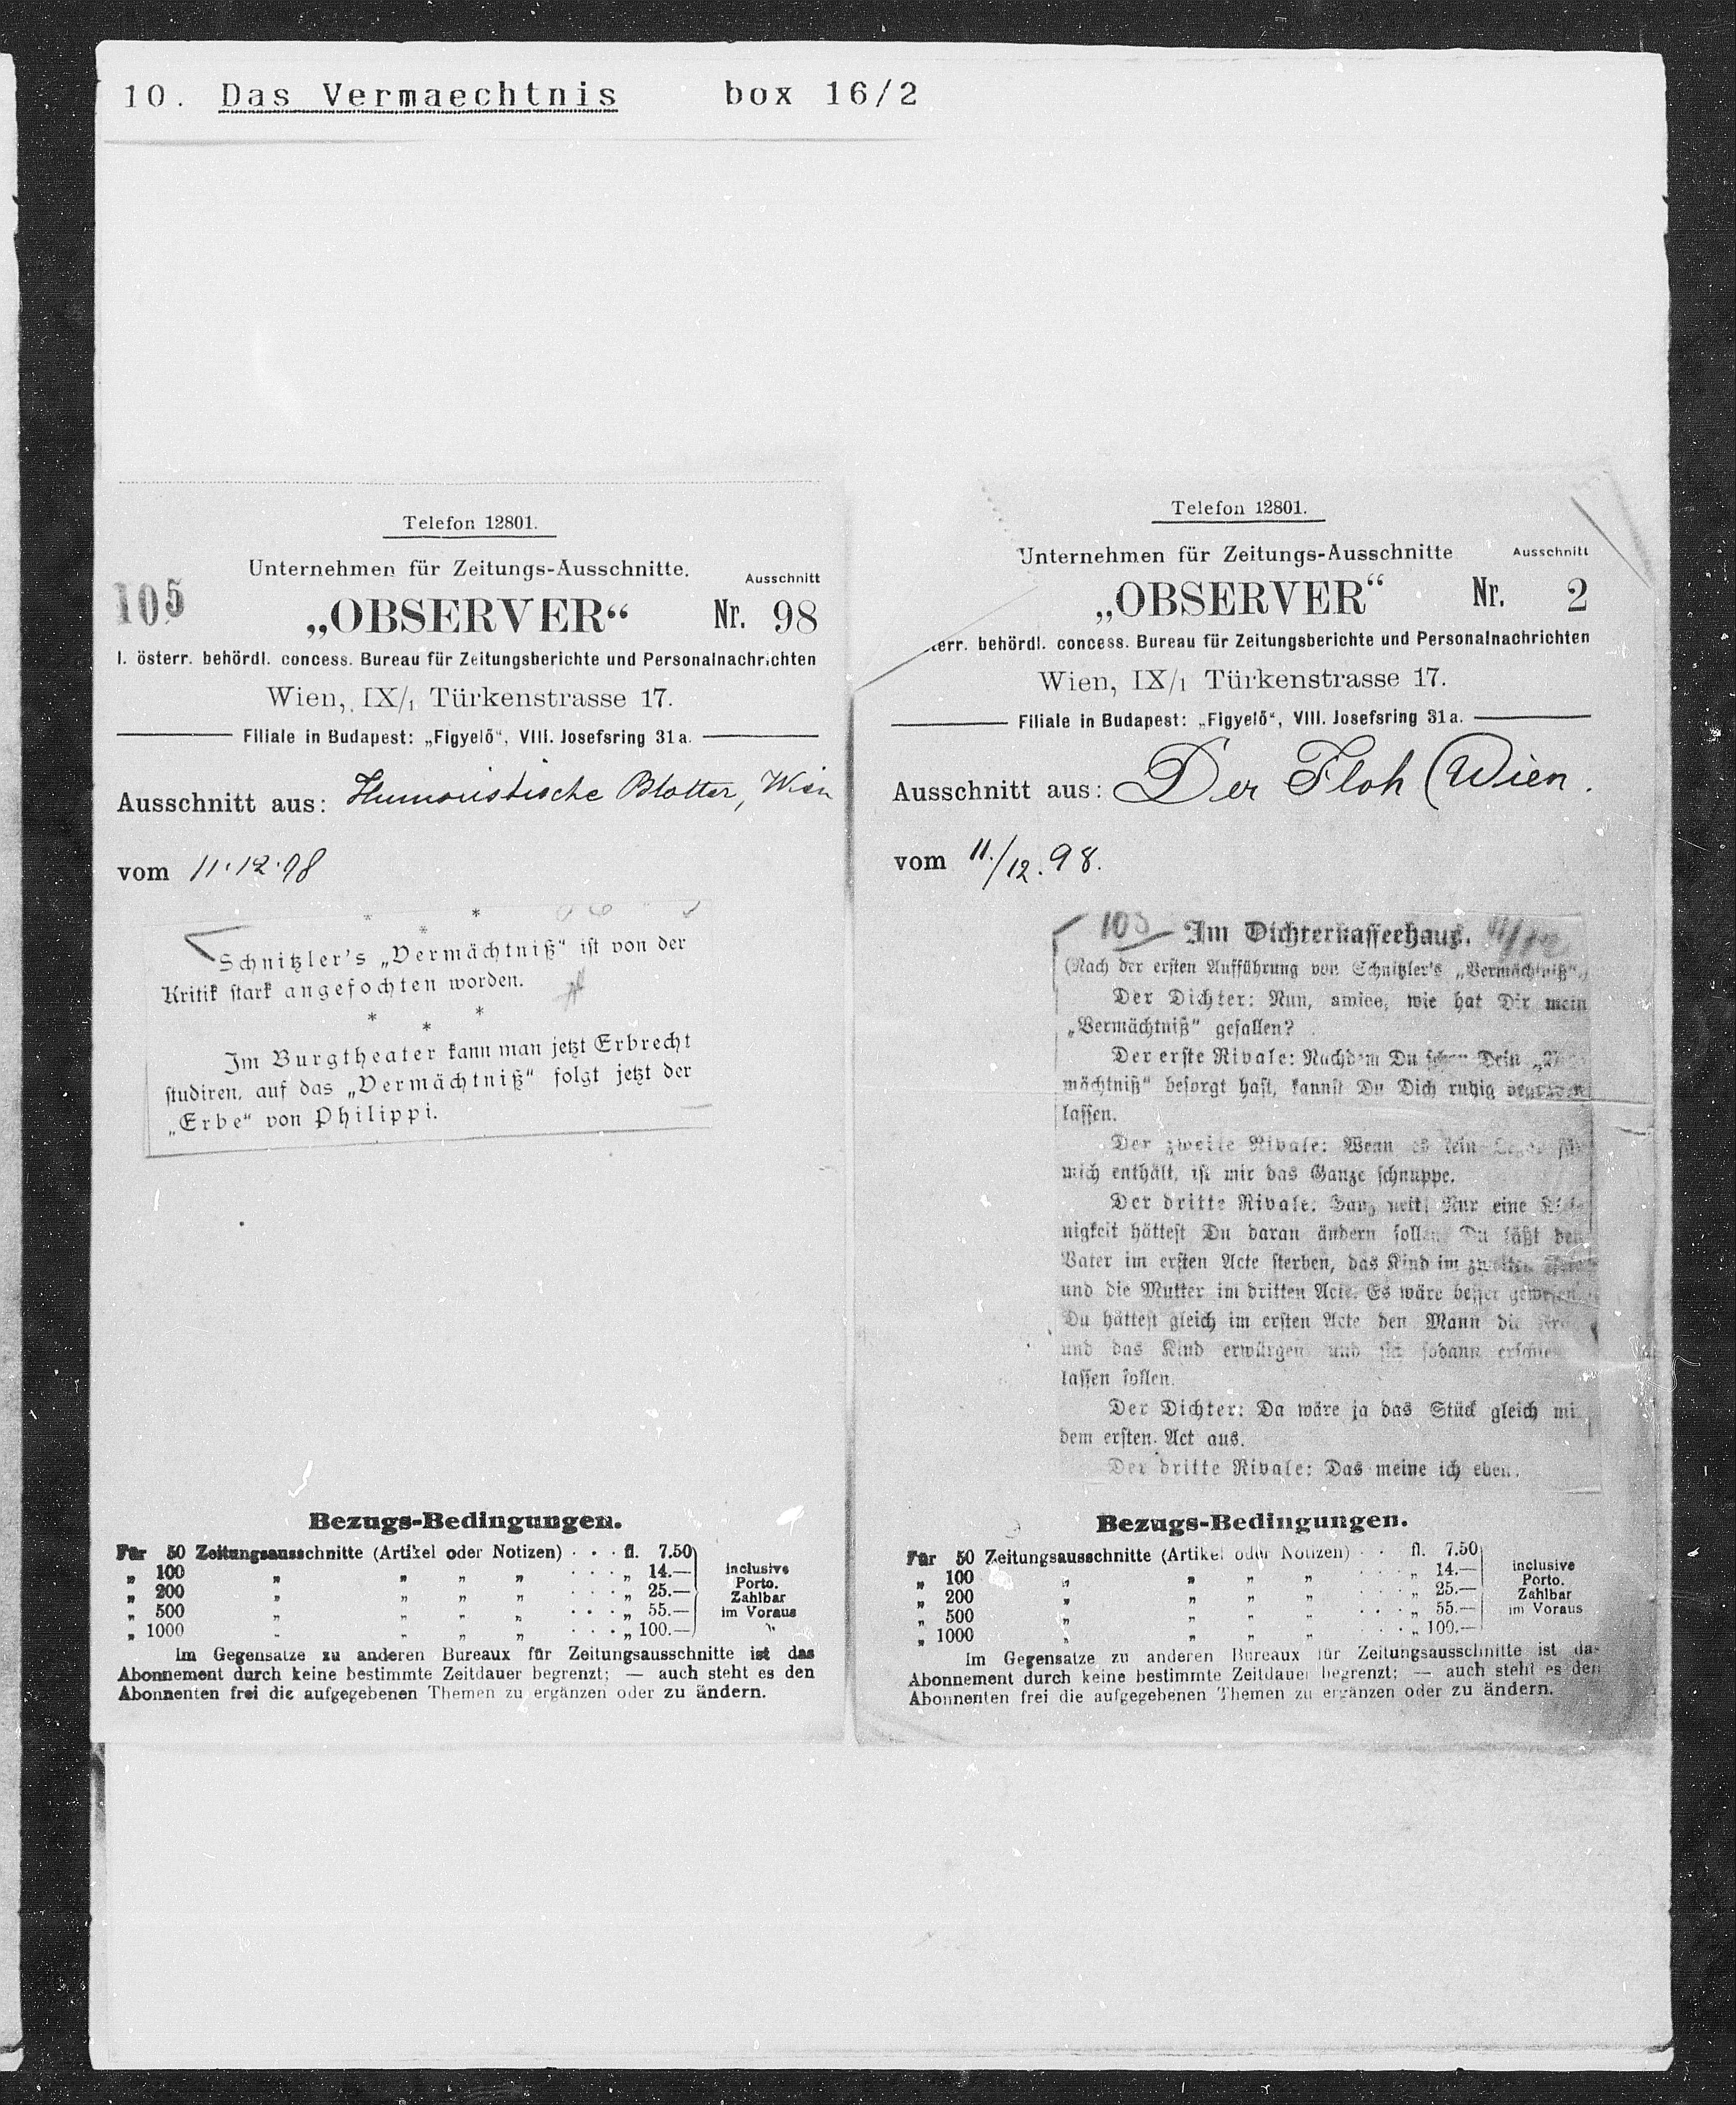 10. Das Vermaechtnis box 16/2
Telefon 12801.
Unternehmen für Zeitungs-Ausschnitte. Ausschnitt
105 „OBSERVER“ Nr. 98
I. österr. behördl. concess. Bureau für Zeitungsberichte und Personalnachrichten
Wien, IX/1 Türkenstrasse 17.
Filiale in Budapest: „Figyelő“, VIII. Josefsring 31a.
Ausschnitt aus: Humoristische Blätter, Wien
vom 11.12.98
* * *
Schnitzler's „Vermächtniß“ ist von der
Kritik stark angefochten worden.
* * *
Im Burgtheater kann man jetzt Erbrecht
studiren, auf das „Vermächtniß“ folgt jetzt der
„Erbe“ von Philippi.
Bezugs-Bedingungen.
Für 50 Zeitungsausschnitte (Artikel oder Notizen) . . . fl. 7.50
„ 100 „ „ „ „ . . . „ 14.— inclusive
„ 200 „ „ „ „ . . . „ 25.— Porto.
„ 500 „ „ „ „ . . . „ 55.— Zahlbar
„ 1000 „ „ „ „ . . . „ 100.— im Voraus
Im Gegensatze zu anderen Bureaux für Zeitungsausschnitte ist das
Abonnement durch keine bestimmte Zeitdauer begrenzt; — auch steht es den
Abonnenten frei die aufgegebenen Themen zu ergänzen oder zu ändern.
Telefon 12801.
Unternehmen für Zeitungs-Ausschnitte Ausschnitt
„OBSERVER“ Nr. 2
terr. behördl. concess. Bureau für Zeitungsberichte und Personalnachrichten
Wien, IX/1 Türkenstrasse 17.
Filiale in Budapest: „Figyelő“, VIII. Josefsring 31a.
Ausschnitt aus: Der Floh (Wien.
vom 11./12. 98.
103 Im Dichterkaffeehaus. 11/12
(Nach der ersten Aufführung von Schnitzler's „Vermächtniß“.)
Der Dichter: Nun, amice, wie hat Dir mein
„Vermächtniß“ gefallen?
Der erste Rivale: Nachdem Du schon Dein „Ver-
mächtniß“ besorgt hast, kannst Du Dich ruhig begraben
lassen.
Der zweite Rivale: Wenn es kein Legat für
mich enthält, ist mir das Ganze schnuppe.
Der dritte Rivale: Ganz nett! Nur eine Klei-
nigkeit hättest Du daran ändern sollen. Du läßt den
Vater im ersten Acte sterben, das Kind im zweiten Acte
und die Mutter im dritten Acte. Es wäre besser gewesen,
Du hättest gleich im ersten Acte den Mann die Frau
und das Kind erwürgen und sich sodann
lassen sollen.
Der Dichter: Da wäre ja das Stück gleich mi
dem ersten Act aus.
Der dritte Rivale: Das meine ich eben.
Bezugs-Bedingungen.
Für 50 Zeitungsausschnitte (Artikel oder Notizen) . . fl. 7.50
„ 100 „ „ „ „ . . . „ 14.— inclusive
„ 200 „ „ „ „ . . . „ 25.— Porto.
„ 500 „ „ „ „ . . . „ 55.— Zahlbar
„ 1000 „ „ „ „ . . . „ 100.— im Voraus
Im Gegensatze zu anderen Bureaux für Zeitungsausschnitte ist das
Abonnement durch keine bestimmte Zeitdauer begrenzt; — auch steht es den
Abonnenten frei die aufgegebenen Themen zu ergänzen oder zu ändern.